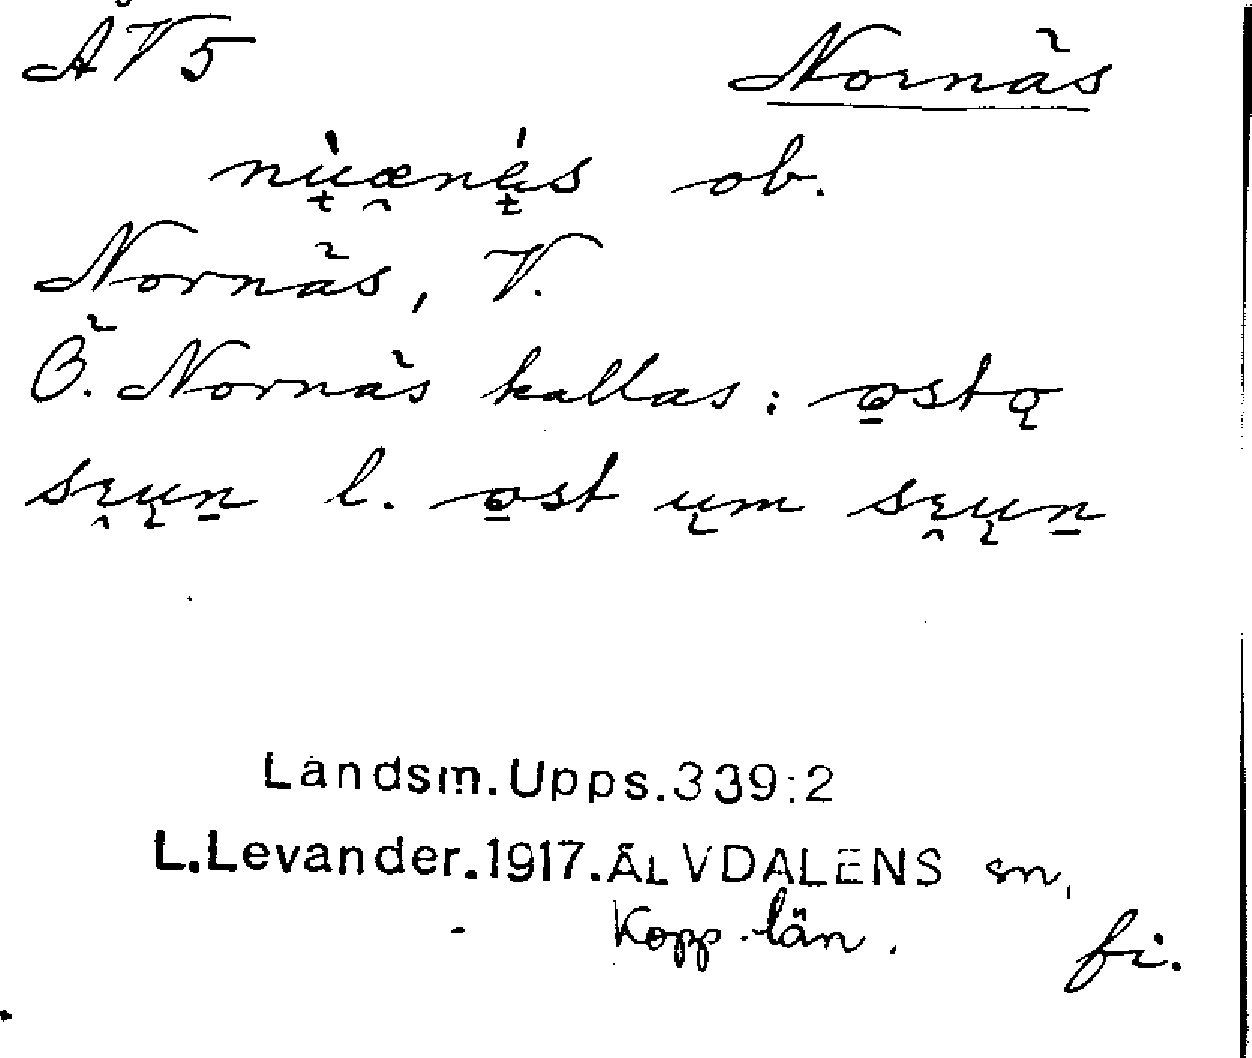 ÅV5 Nornäs
nu̖æną̈s ob.
Nornäs, V.
Ö. Nornäs kallas: o̠stǫ
sɩ̯ų̈n̠ l. o̠st ųm sɩ̯ųn̠
Landsm.Upps.339:2
L.Levander.1917.ÄLVDALENS sn,
Kopp. län. fi.